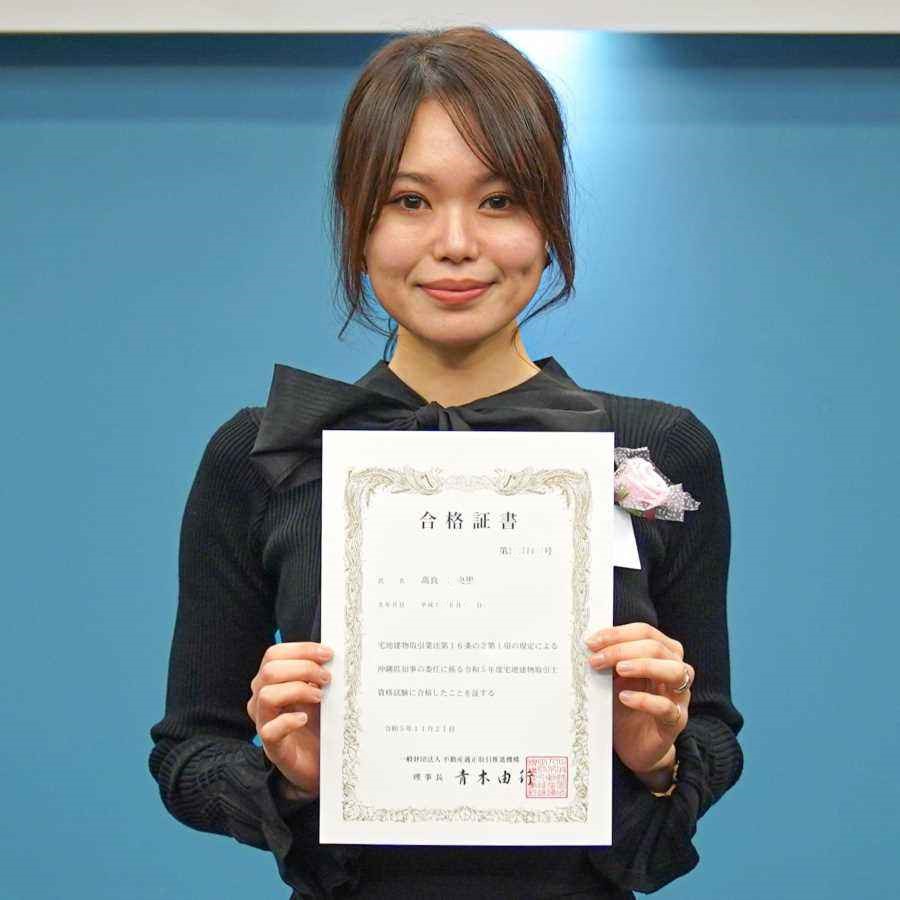 合格証書
氏名 高良
生年月日 平成
宅地建物取引業法第16条の2第1項の規定による
沖縄県知事の委任に係る令和5年度宅地建物取引士
資格試験に合格したことを証する
令和5年11月21日
一般財団法人 不動産適正取引推進機構
理事長 青木由行